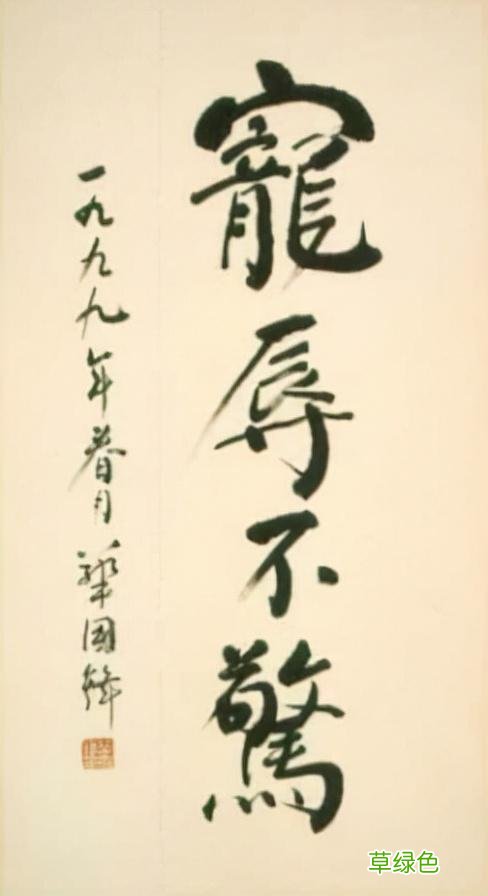 寵辱不驚
一九九九年春月 華國鋒
草绿色